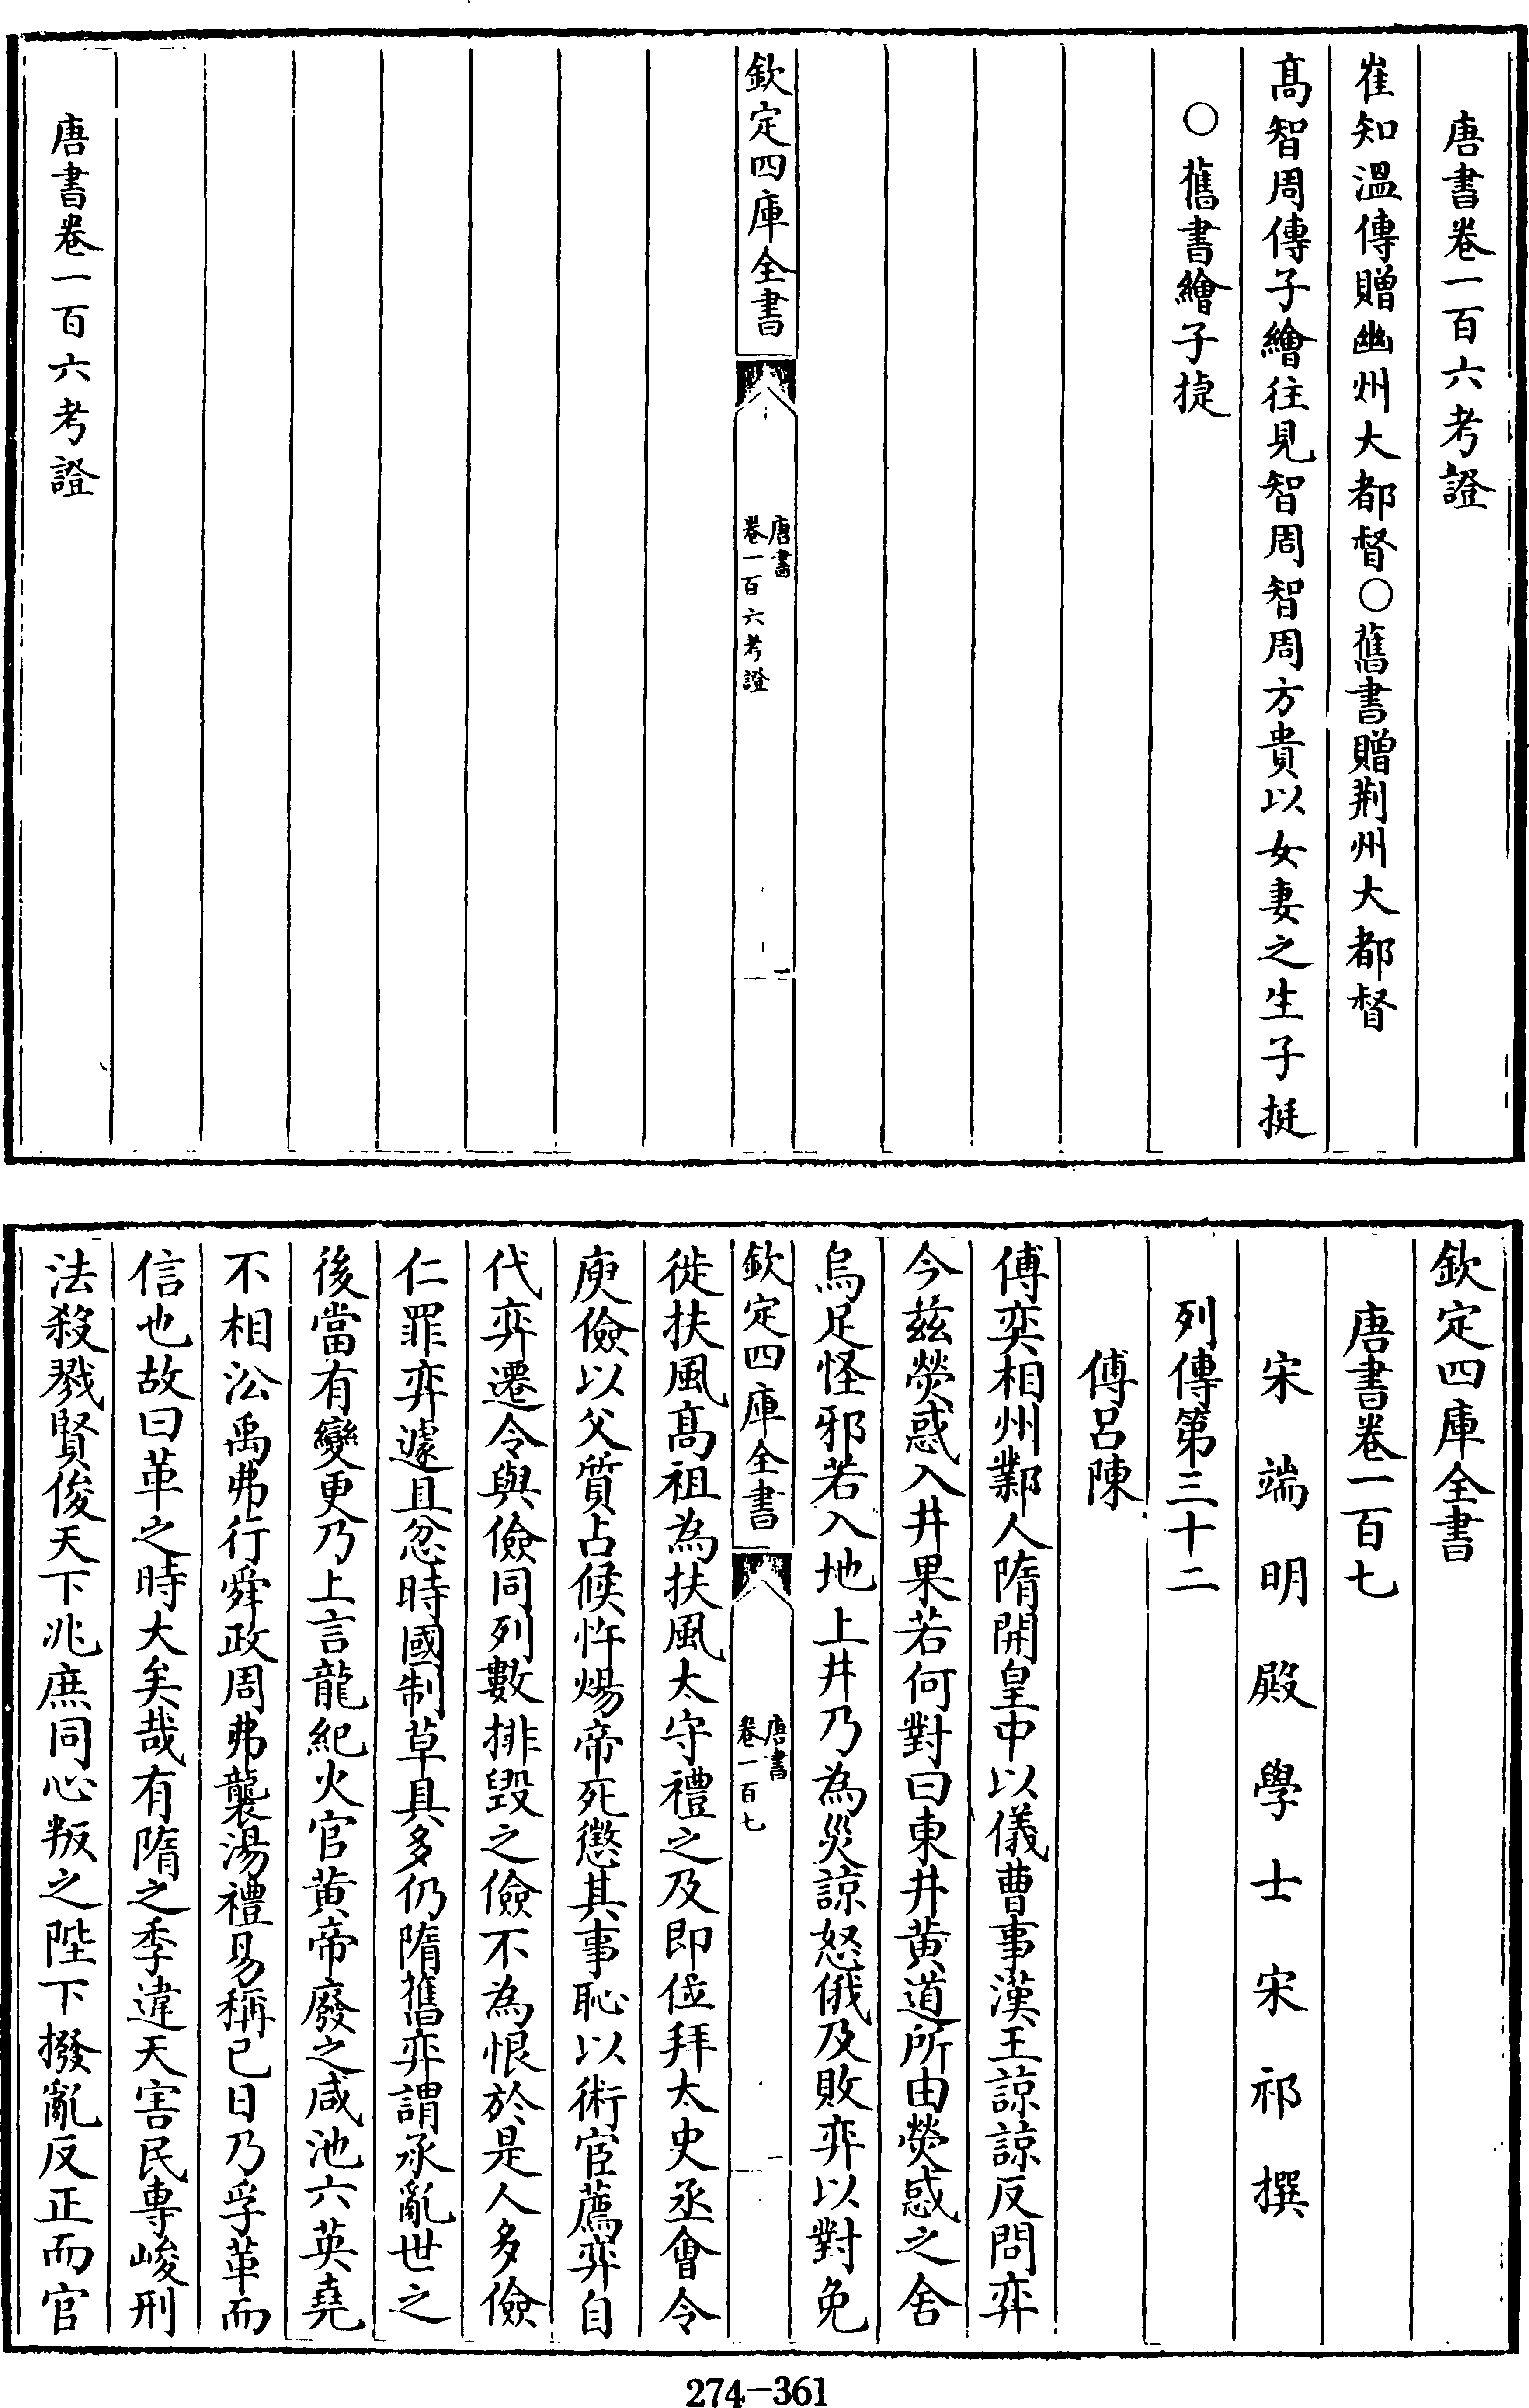 唐書卷一百六考證
崔知溫傳贈幽州大都督○舊書贈荆州大都督
髙智周傳子繪往見智周智周方貴以女妻之生子挺
○舊書繪子捷
欽定四庫全書
唐書
卷一百六考證
一
唐書卷一百六考證
欽定四庫全書
唐書卷一百七
宋端明殿學士宋祁撰
列傳第三十二
傅呂陳
傅奕相州鄴人隋開皇中以儀曹事漢王諒諒反問弈
今茲熒惑入井果若何對曰東井黄道所由熒惑之舍
烏足怪邪若入地上井乃為災諒怒俄及敗弈以對免
欽定四庫全書
唐書
卷一百七
一
徙扶風髙祖為扶風太守禮之及即位拜太史丞會令
庾儉以父質占候忤煬帝死懲其事恥以術宦薦弈自
代弈遷令與儉同列數排毁之儉不為恨於是人多儉
仁罪弈遽且忿時國制草具多仍隋舊弈謂承亂世之
後當有變更乃上言龍紀火官黄帝廢之咸池六英堯
不相沿禹弗行舜政周弗襲湯禮易稱已日乃孚革而
信也故曰革之時大矣哉有隋之季違天害民專峻刑
法殺戮賢俊天下兆庶同心叛之陛下撥亂反正而官
274-361